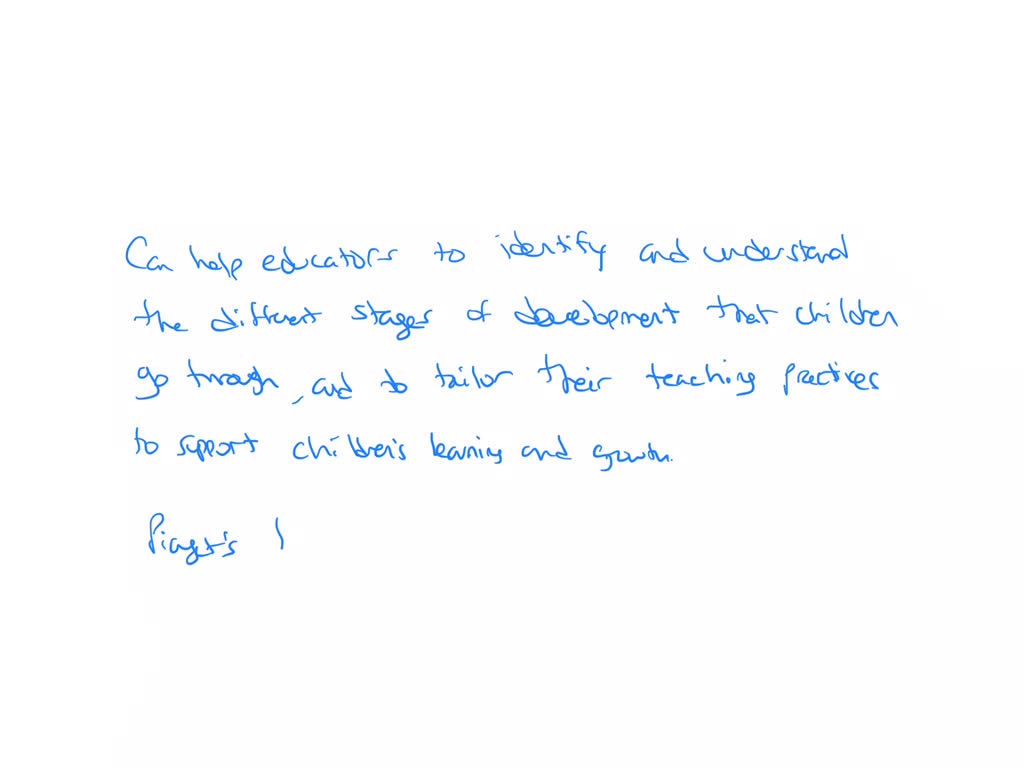 Can help educators to identify and understand
the different stages of development that children
go through, and to tailor their teaching practices
to support children's learning and growth.
Piaget's